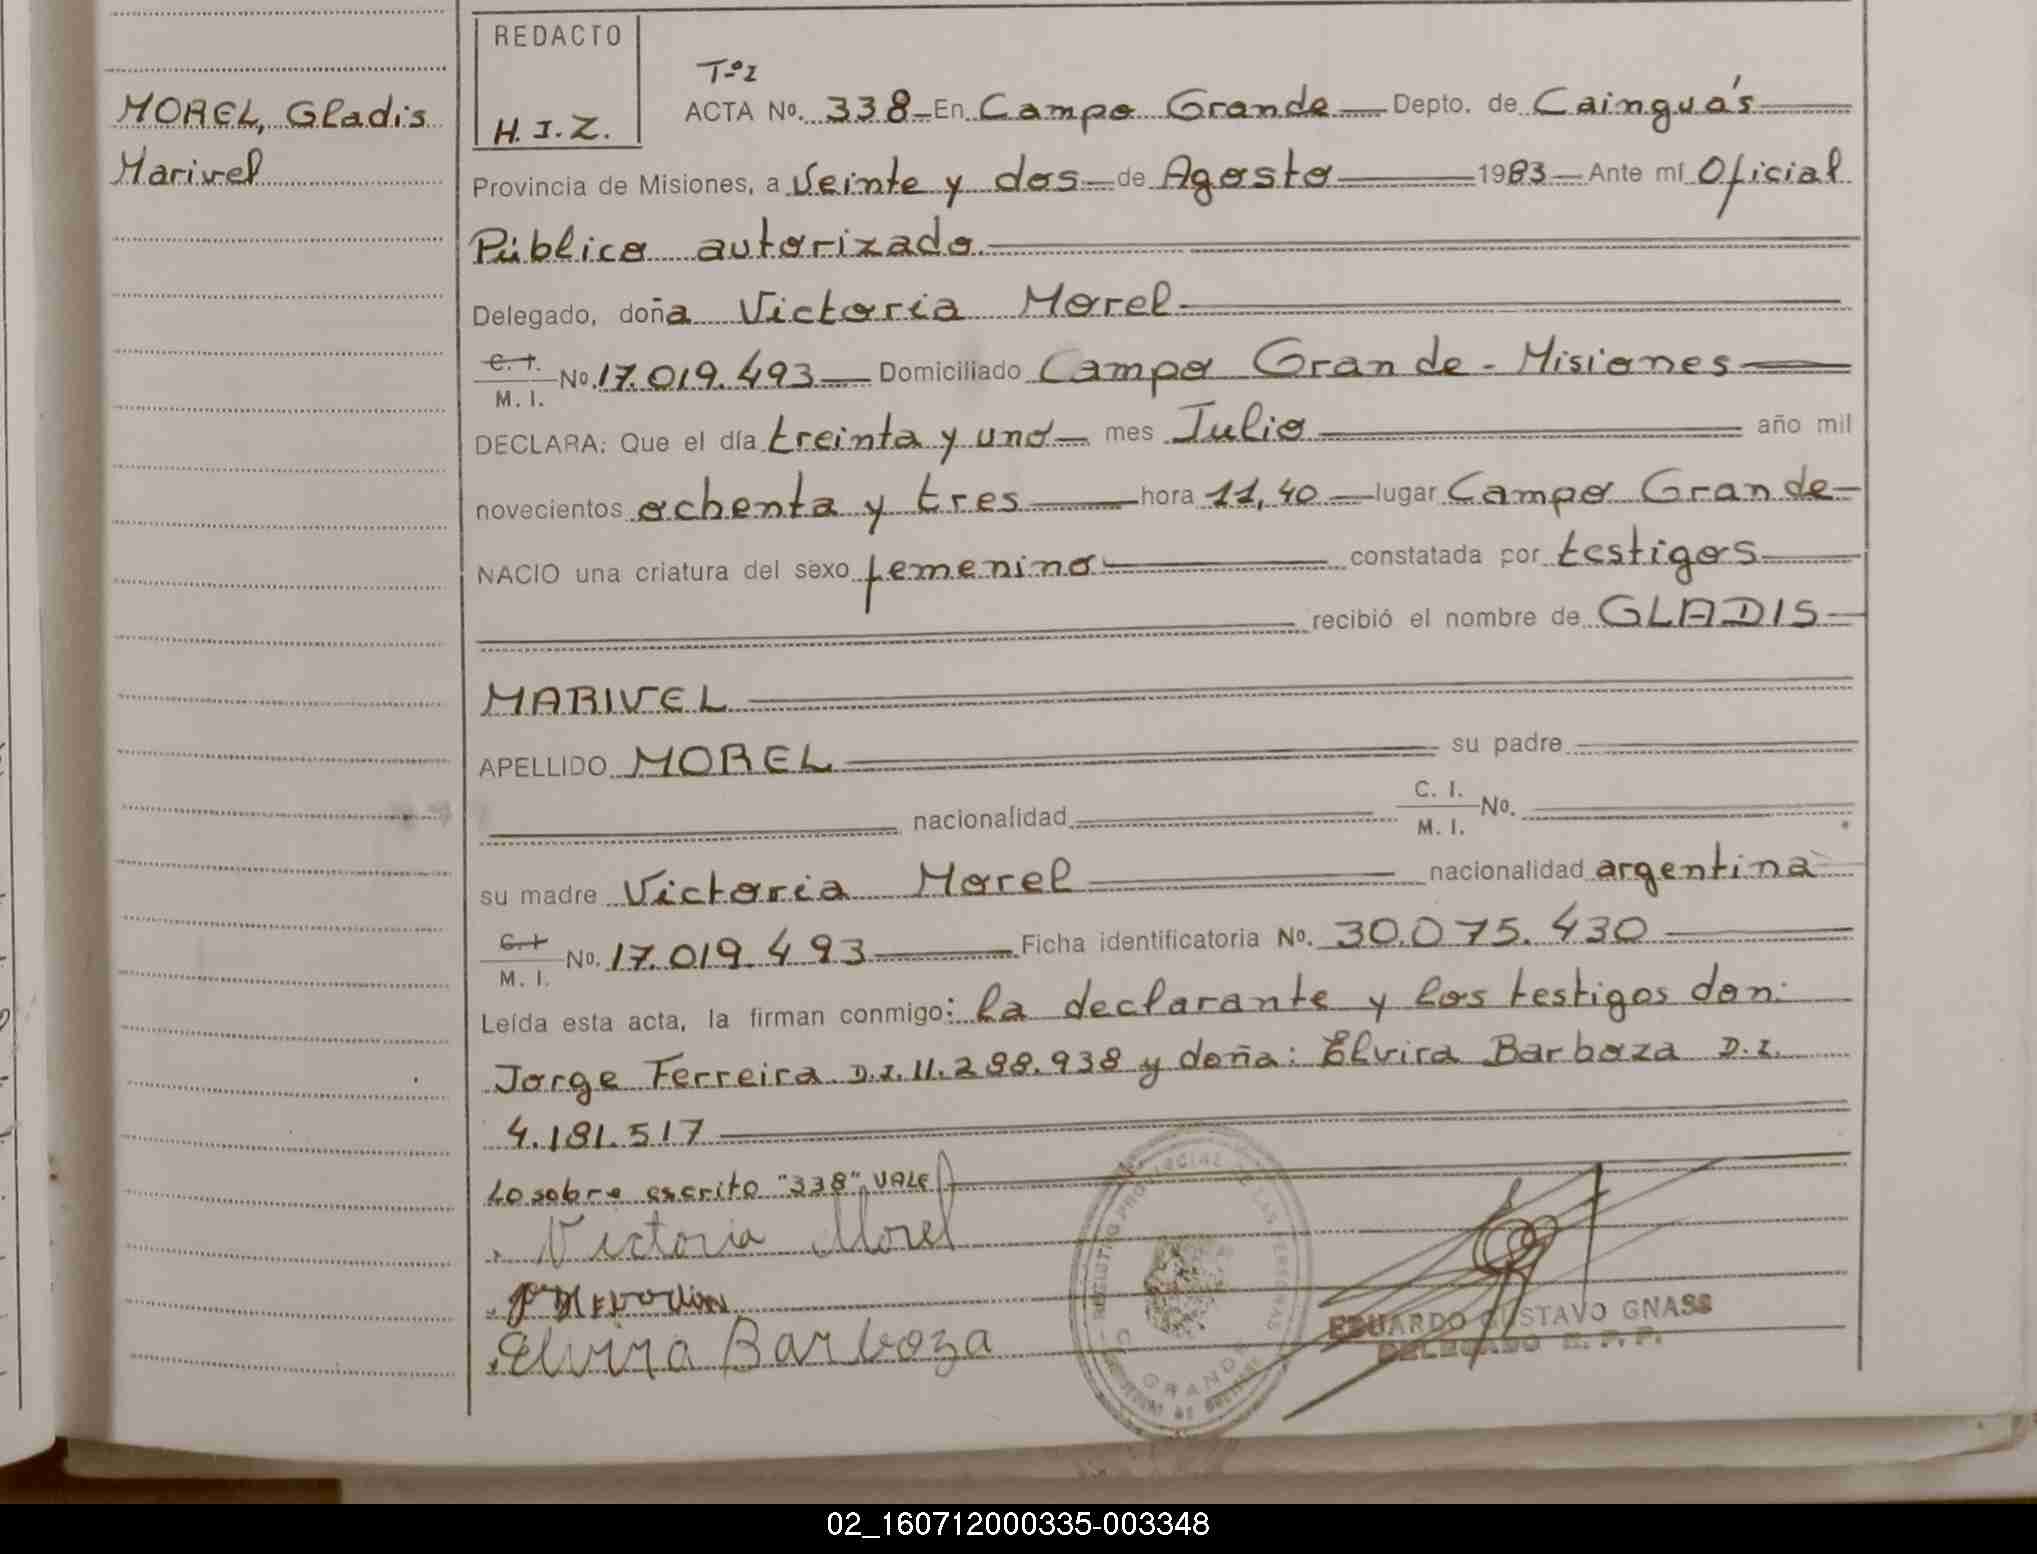 MOREL, Gladis
Marivel
REDACTO
H.I.Z.
Tº I
ACTA Nº. 338 En Campo Grande Depto. de Cainguás
Provincia de Misiones, a Veinte y dos de Agosto 1983 Ante mí Oficial
Público autorizado.
Delegado, doña Victoria Morel
C. I. M. I. Nº. 17.019.493 Domiciliado Campo Grande - Misiones
DECLARA: Que el día treinta y uno mes Julio año mil
novecientos ochenta y tres hora 11,40 lugar Campo Grande
NACIO una criatura del sexo femenino constatada por testigos
recibió el nombre de GLADIS
MARIVEL
APELLIDO MOREL su padre
nacionalidad C. I. M. I. Nº.
su madre Victoria Morel nacionalidad argentina
C. I. M. I. Nº. 17.019.493 Ficha identificatoria Nº. 30.075.430
Leída esta acta, la firman conmigo: la declarante y los testigos don:
Jorge Ferreira D.I. 11.288.938 y doña: Elvira Barboza D.I.
4.181.517
Lo sobre escrito "338" VALE
Victoria Morel
Elvira Barboza
GRANDE
EDUARDO GUSTAVO GNASS
DELEGADO R. P. P.
02_160712000335-003348